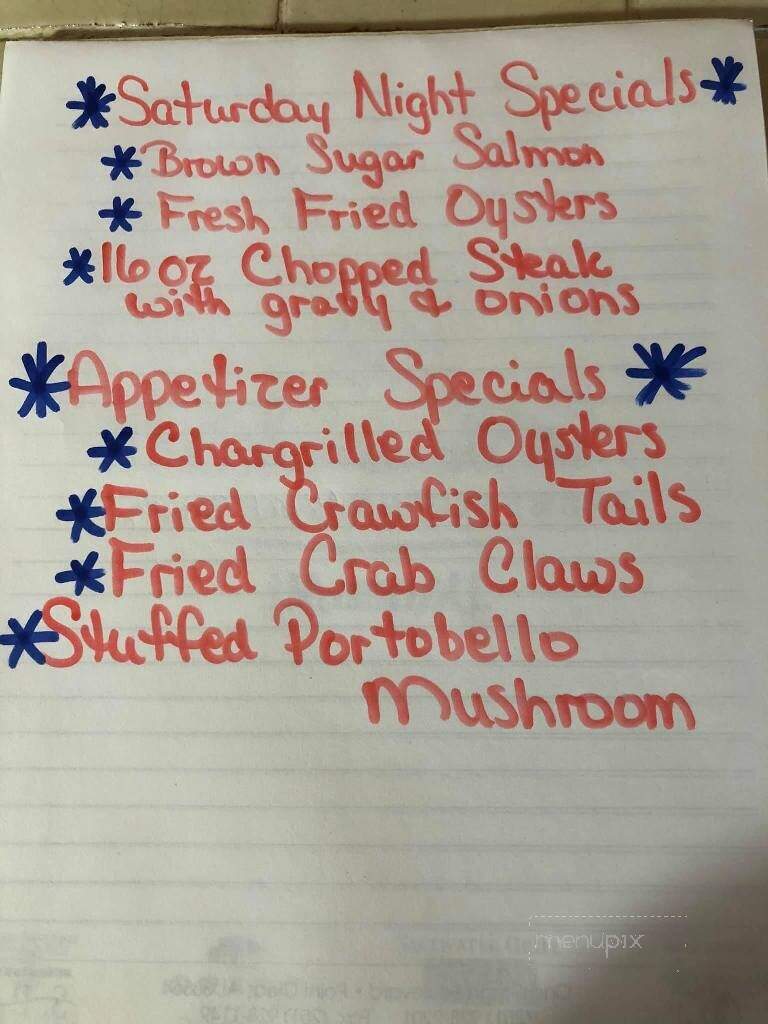 *Saturday Night Specials*
*Brown Sugar Salmon
* Fresh Fried Oysters
*16oz Chopped Steak
with gravy & onions
*Appetizer Specials*
* Chargrilled Oysters
*Fried Crawfish Tails
*Fried Crab Claws
*Stuffed Portobello
Mushroom
menupix